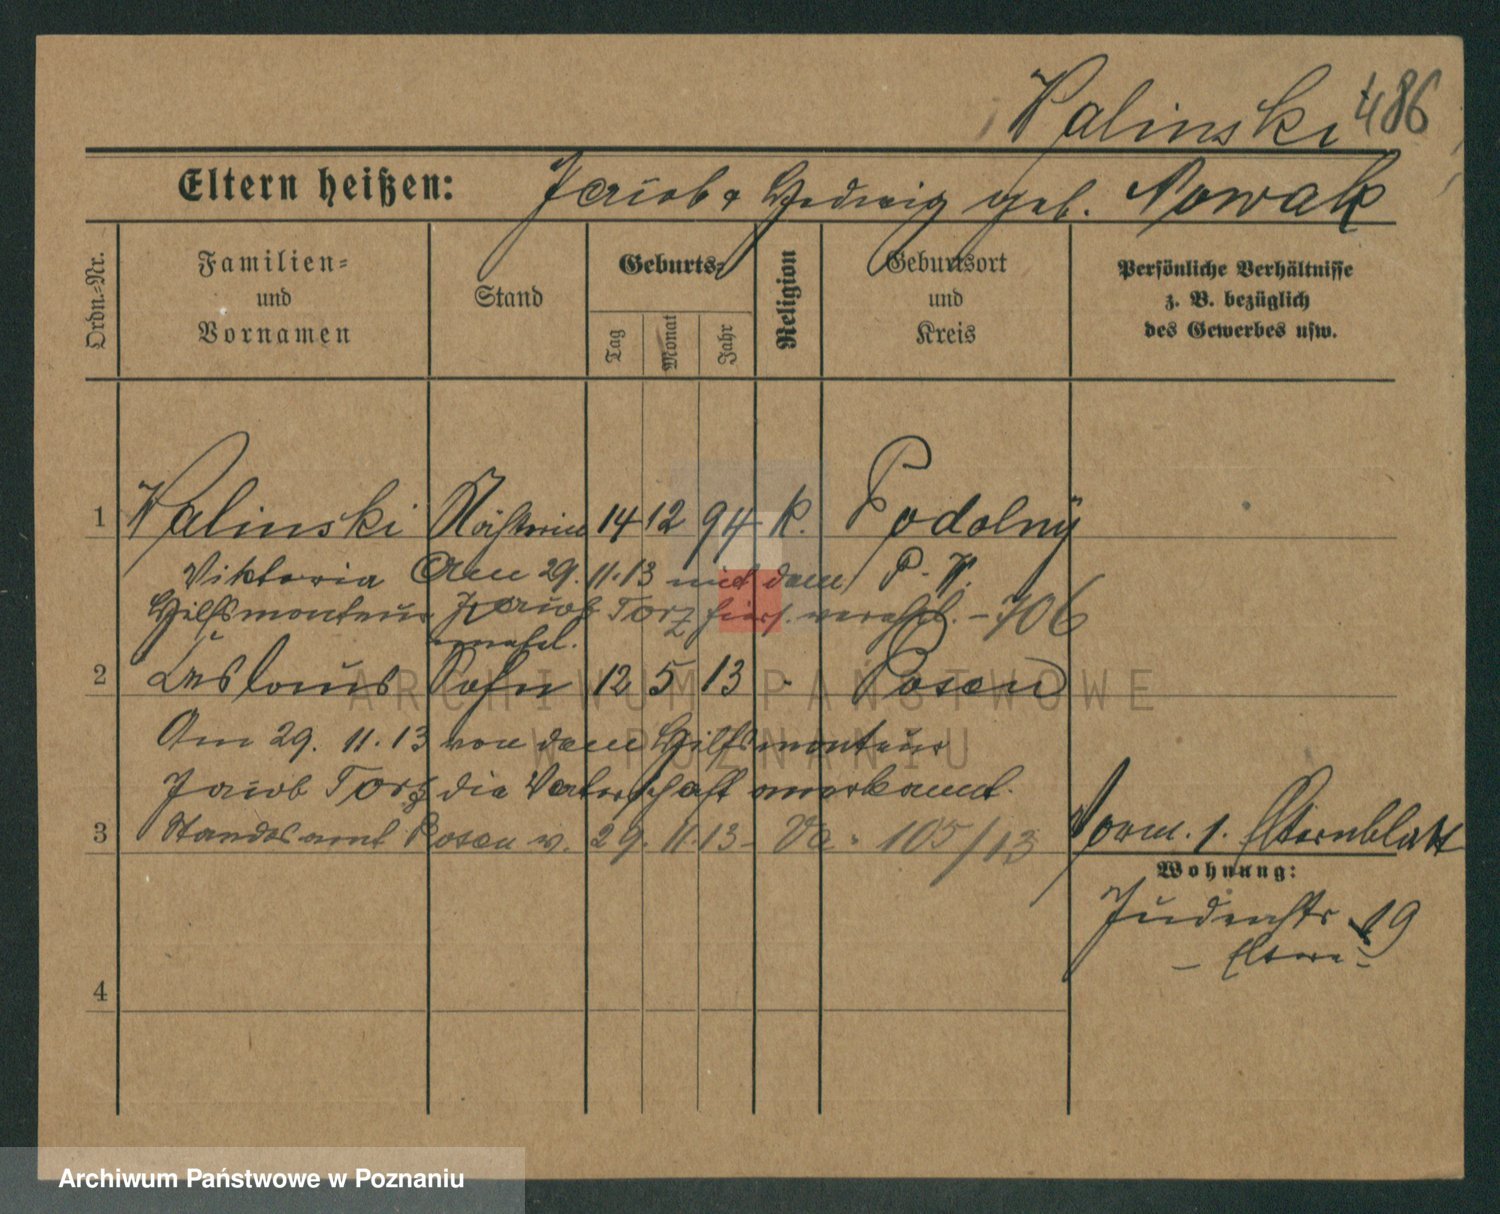 Walinski 486
Eltern heißen: Jacob & Hedwig geb. Nowak
Ordn.-Nr.
Familien- und Vornamen
Stand
Geburts-
Tag
Monat
Jahr
Religion
Geburtsort und Kreis
Persönliche Verhältnisse z. B. bezüglich des Gewerbes usw.
1 Walinski 14 12 94 k. Podolny
Viktoria Am 29. 11. 13 mit dem P. W.
Hilfsmonteur Jacob Torz hiers. verehel. - 706
unehel.
2 Ladislaus Sohn 12 5 13 - Posen
Am 29. 11. 13 von dem Hilfsmonteur
Jacob Torz die Vaterschaft anerkannt.
3 Standesamt Posen v. 29. 11. 13 - 105/13
Vorm. s. Elternblatt
Wohnung:
Judenstr 19
- Eltern -
4
ARCHIWUM PAŃSTWOWE
W POZNANIU
Archiwum Państwowe w Poznaniu